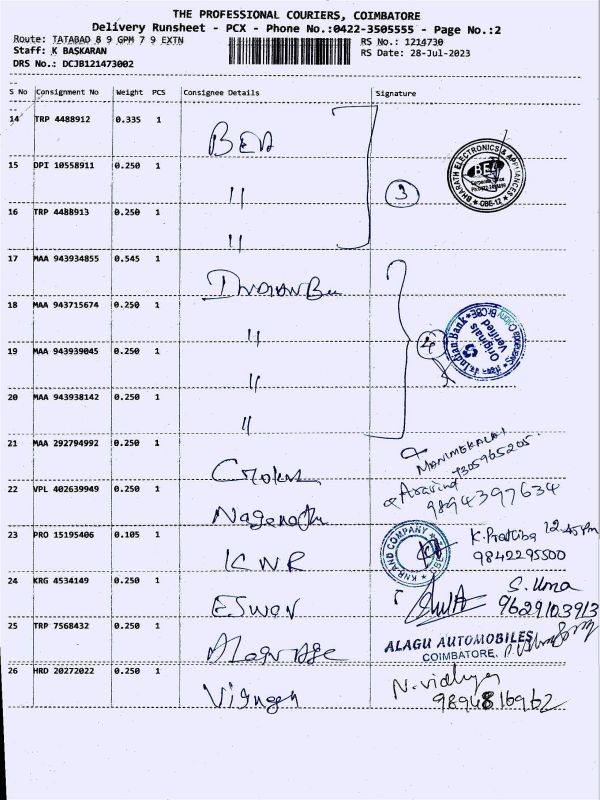 THE PROFESSIONAL COURIERS, COIMBATORE
Delivery Runsheet - PCX - Phone No.:0422-3505555 - Page No.:2
Route: TATABAD 8 9 GPM 7 9 EXTN
RS No.: 1214730
Staff: K BASKARAN
RS Date: 28-Jul-2023
DRS No.: DCJB121473002
S No Consignment No Weight PCS Consignee Details Signature
14 TRP 4488912 0.335 1
BEA
15 DPI 10558911 0.250 1
"
BHARATH ELECTRONICS & APPLIANCES
BEA
CBE-12
3
16 TRP 4488913 0.250 1
"
17 MAA 943934855 0.545 1
Indian Bank
18 MAA 943715674 0.250 1
"
Indian Bank
Originals
Verified
4
19 MAA 943939045 0.250 1
"
20 MAA 943938142 0.250 1
"
21 MAA 292794992 0.250 1
MANIMEKALAI
22 VPL 402639949 0.250 1
Aravind
9894397634
23 PRO 15195406 0.105 1
KNR
KNR AND COMPANY
K. Prathiba 12.45pm
9842295500
24 KRG 4534149 0.250 1
ESWAR
S. Uma
9629103913
25 TRP 7568432 0.250 1
ALAGU AUTOMOBILES
COIMBATORE.
26 HRD 20272022 0.250 1
N. Vidhya
9894816962